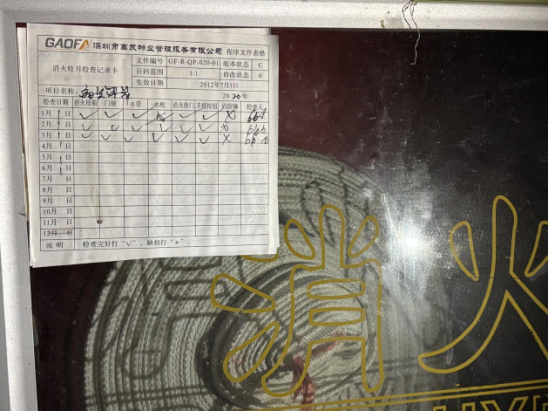 GAOFA 深圳市高发物业管理服务有限公司 程序文件表格
消火栓月检查记录卡 文件编号 GF-R-QP-020-01 版本状态 C
页码范围 1/1 修改状态 0
生效日期 2012年7月1日
项目名称: 2020年
检查日期 消火栓箱 门锁 水管 水枪 消火栓门 手报按钮 消防锤 检查人
1月1日 √ √ √ √ √ √ × 661
2月1日 √ √ √ √ √ √ ×
3月1日 √ √ √ √ √ √ ×
4月1日
5月1日
6月1日
7月日
8月日
9月日
10月日
11月日
12月日
说明 检查完好打“√”,缺损打“×”。
消火